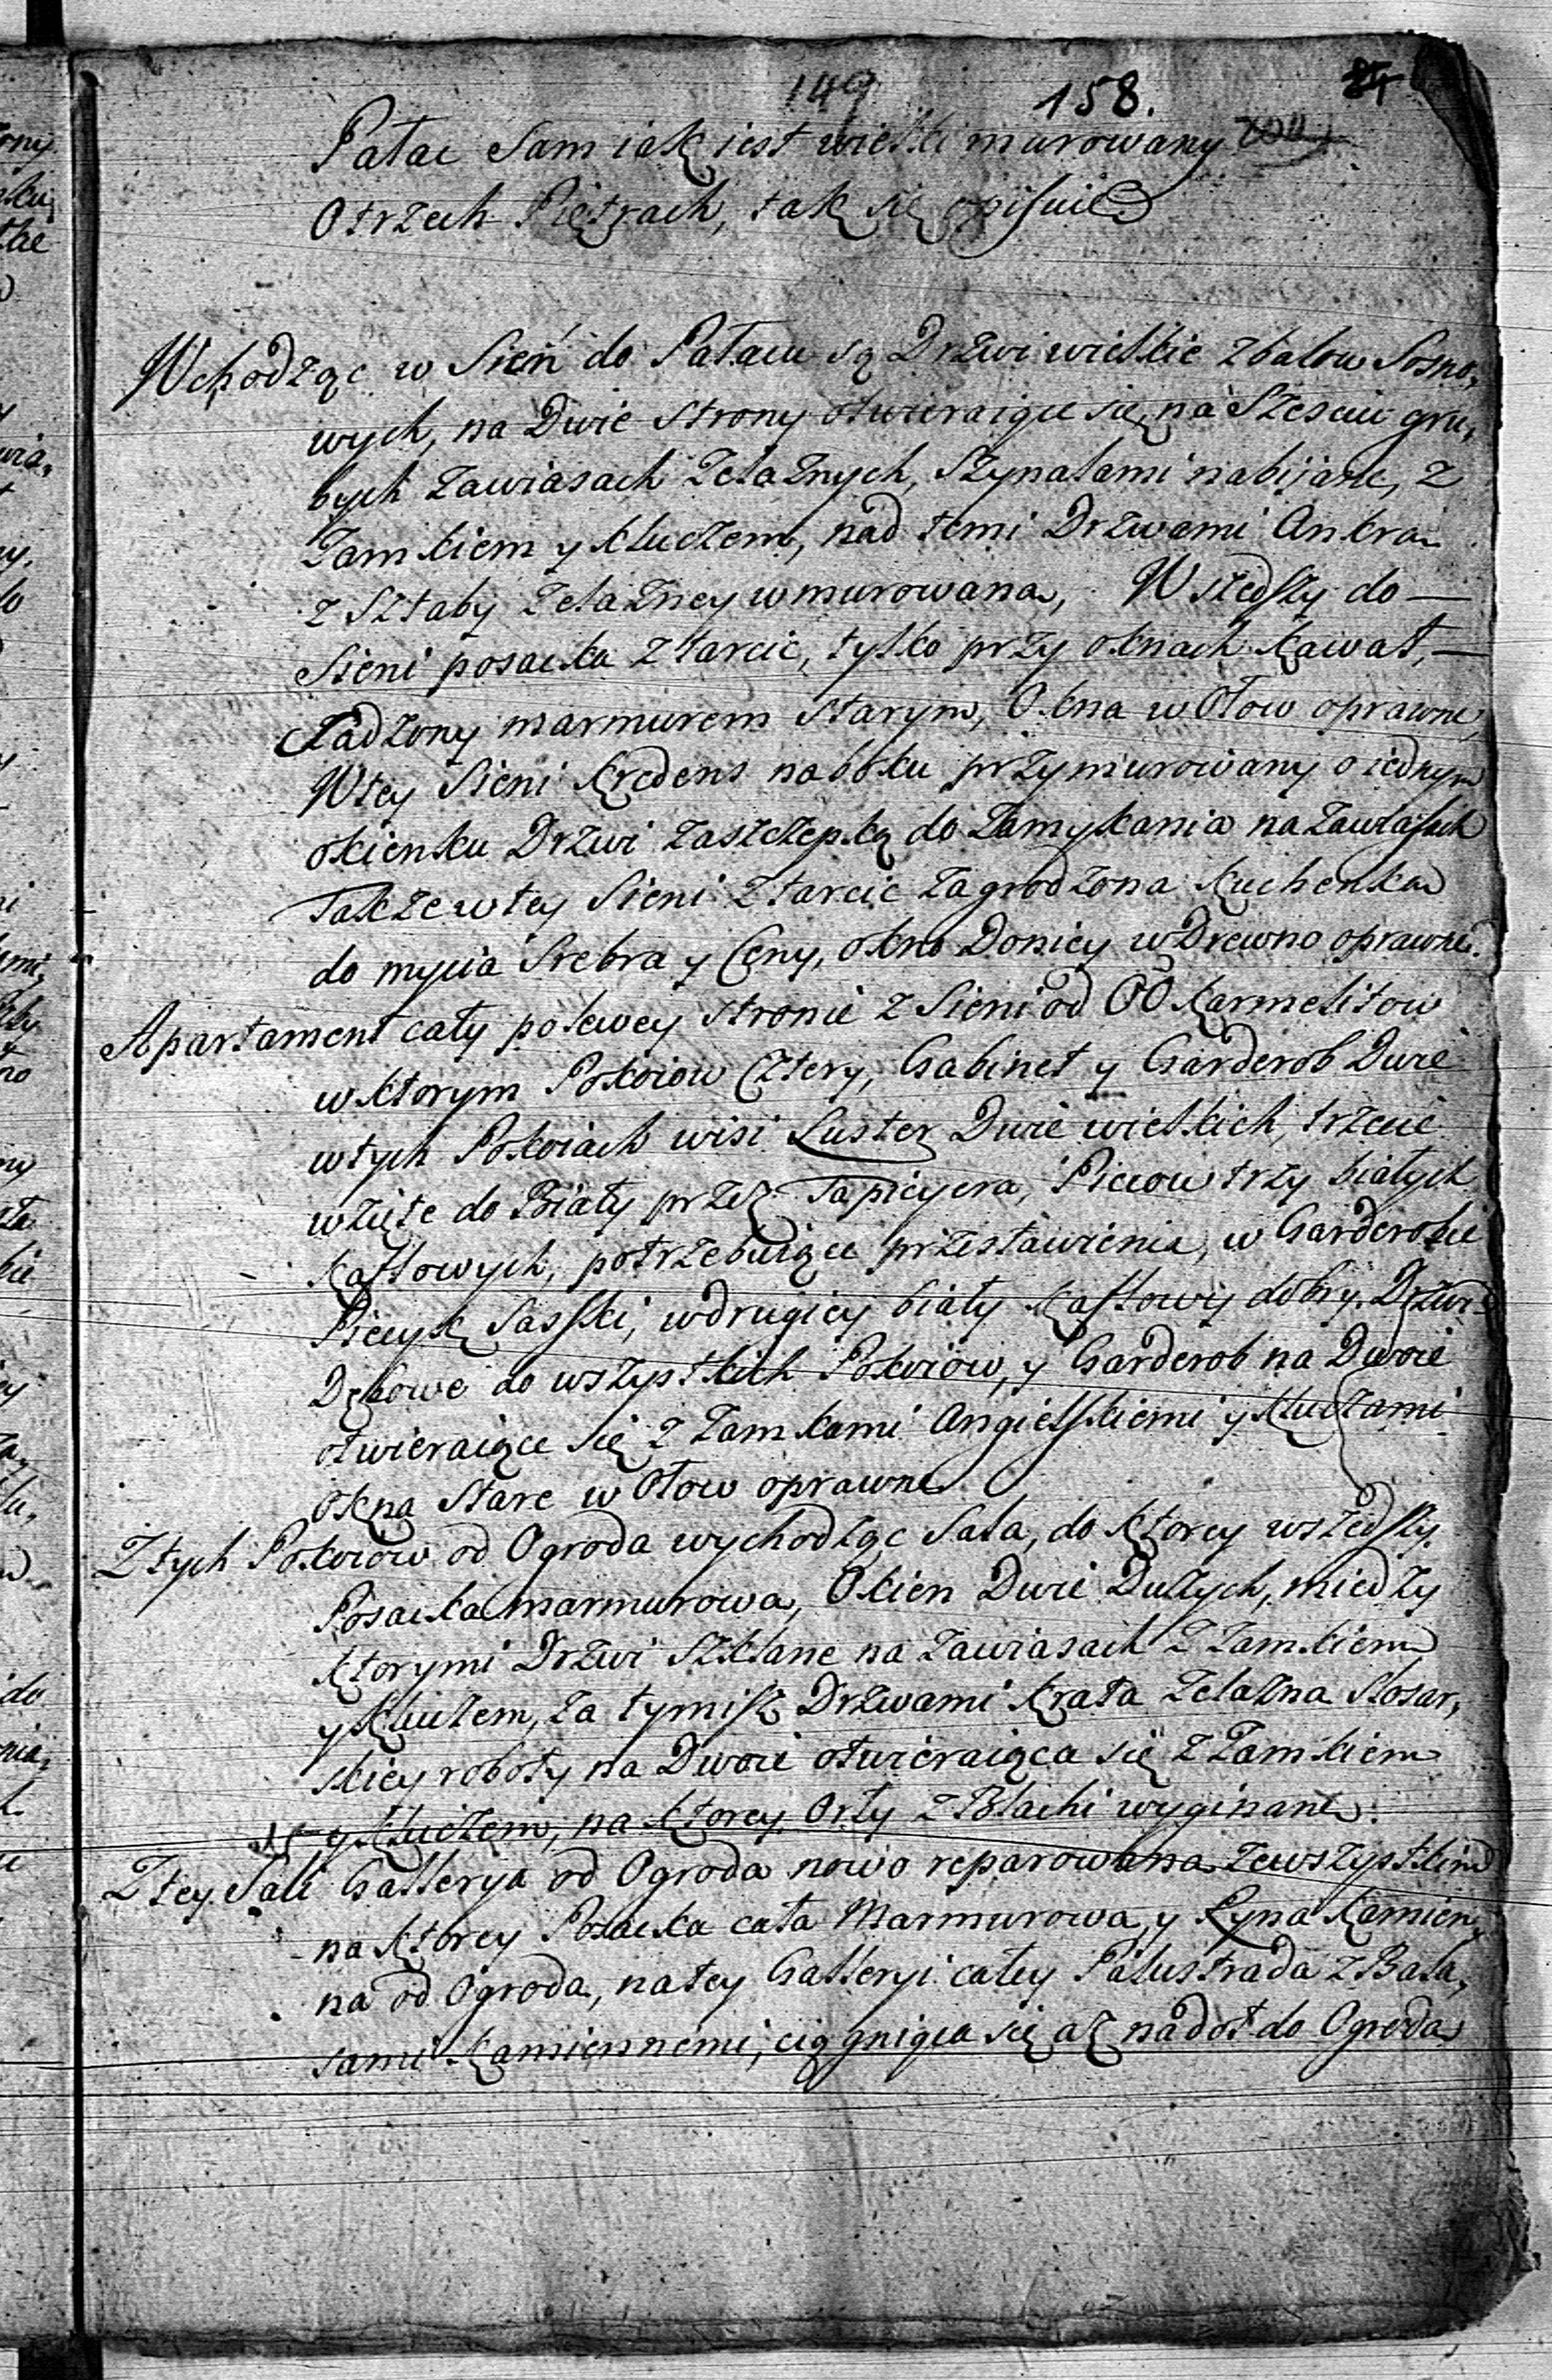 149 158.
Pałac Sam iak iest wielki murowany
O trzech Piętrach, tak się opisuie
Wchodząc w Sień do Pałacu są Drzwi wielkie z balow Sosno,
wych, na Dwie Strony otwieraiące się, na Szesciu gru,
bych Zawiasach Żelaznych, Szynalami nabijane, z
Zamkiem y kluczem, nad temi Drzwami Ankra
z Sztaby Żelazney wmurowana, Wszedszy do —
Sieni posacka z tarcic, tylko przy oknach kawał, —
Sadzony marmurem starym, Okna w Ołow oprawne,
W tey Sieni kredens na boku przymurowany o iednym
okienku Drzwi zaszczepką do Zamykania na Zawiasach
Takze w tey Sieni z tarcic zagrodzona kuchenka
do mycia Srebra y Ceny, okno Donicy w Drewno oprawne.
Apartament cały po lewey stronie z Sieni od OO Karmelitow
w ktorym Pokoiow Cztery, Gabinet y Garderob Dwie
w tych Pokoiach wisi Luster Dwie wielkich, trzecie
wzięte do Biały przez Tapicyera, Piecow trzy białych
kaflowych, potrzebuiące przestawienia, w Garderobie
Piecyk Sasski, w drugiey biały kaflowy dobry. Drzwi
Dębowe do wszystkich Pokoiow, y Garderob na Dwoie
otwieraiące się z Zamkami Angielskiemi y kluczami
Okna Stare w Ołow oprawne.
Z tych Pokoiow od Ogroda wychodząc Sala, do ktorey wszedszy
Posacka marmurowa, Okien Dwie Duzych, miedzy
ktorymi Drzwi Szklane na Zawiasach z Zamkiem
y kluczem, za tymisz Drzwami krata Żelazna Slosar,
skiey roboty na Dwoie otwieraiąca się z Zamkiem
y kluczem, na ktorey Orły z Blachi wyginane.
Z tey Sali Galleryia od Ogroda nowo reparowana zewszystkim
na ktorey Posacka cała Marmurowa, y Rynа kamien,
na od Ogroda, na tey Galleryi całey Palustrada z Bala,
sami kamiennemi, ciągniąca się az na doł do Ogroda